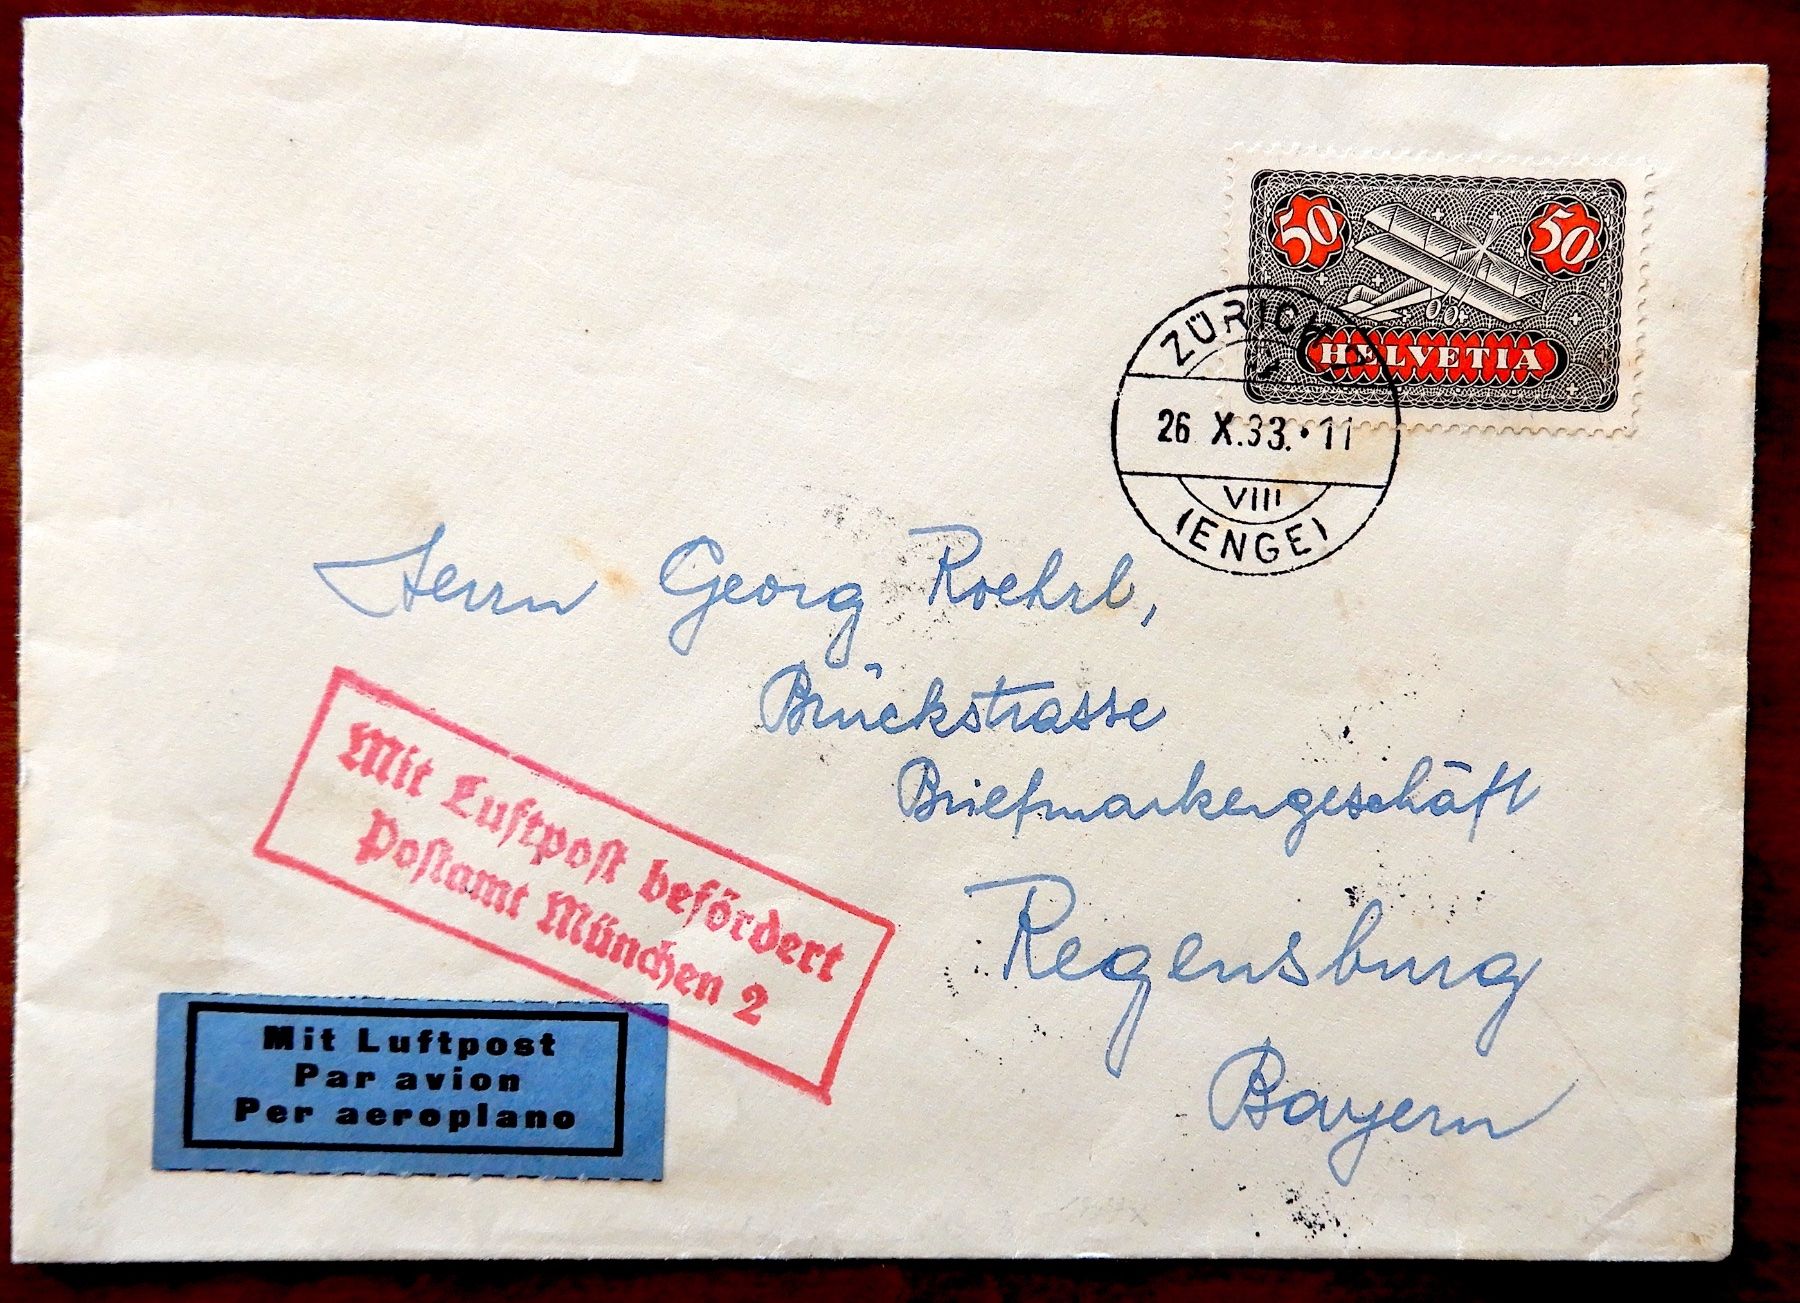 50 50
HELVETIA
ZÜRICH 2
26 X.33.•11
VIII
(ENGE)
Herrn Georg Roehrl,
Brückstrasse
Briefmarkengeschäft
Regensburg
Bayern
Mit Luftpost befördert
Postamt München 2
Mit Luftpost
Par avion
Per aeroplano